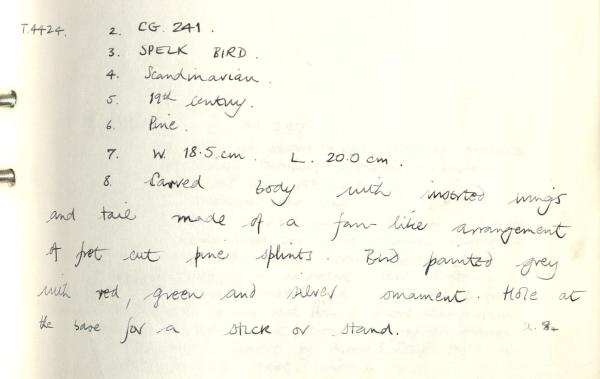 T.4424. 2. CG. 241.
3. SPELK BIRD.
4. Scandinavian.
5. 19th century.
6. Pine.
7. W. 18.5 cm. L. 20.0 cm.
8. Carved body with inserted wings
and tail made of a fan-like arrangement
of fret cut pine splints. Bird painted grey
with red, green and silver ornament. Hole at
the base for a stick or stand.